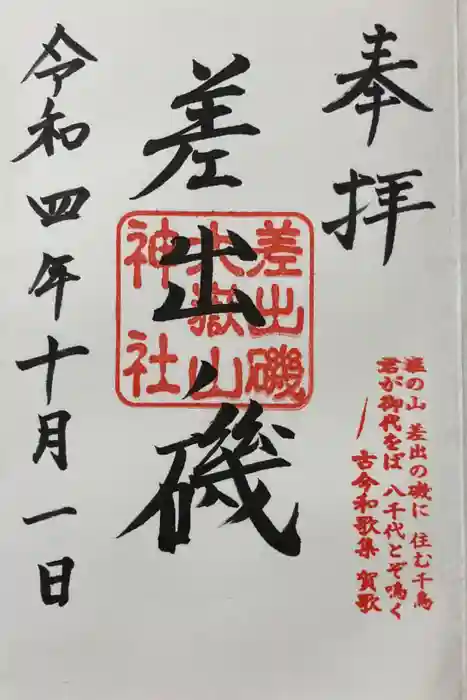 奉拝
塩の山 差出の磯に 住む千鳥
君が御代をば 八千代とぞ鳴く
古今和歌集 賀歌
差出ノ磯
差出磯
大嶽山
神社
令和四年十月一日